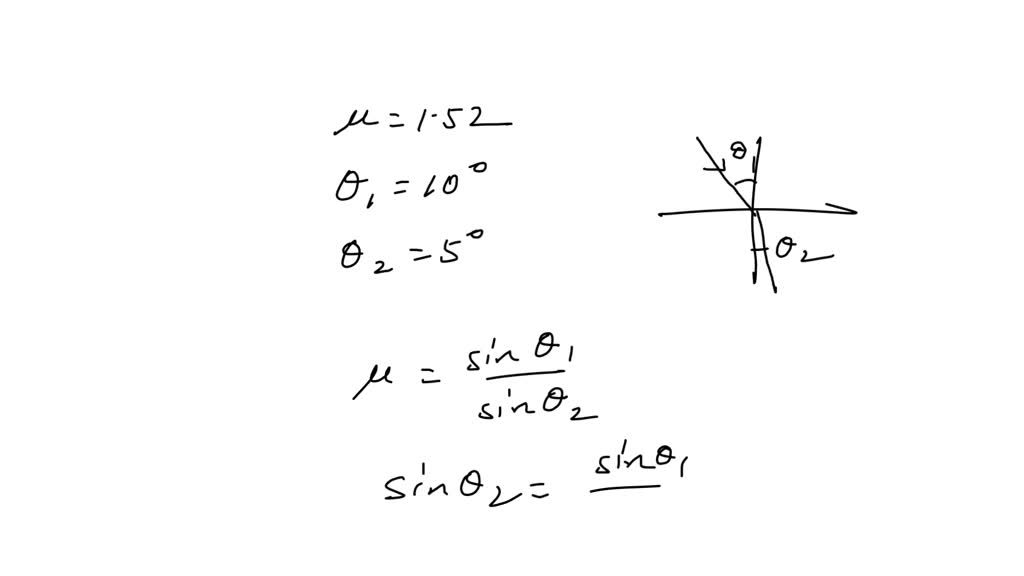 μ = 1.52
θ₁ = 10°
θ₂ = 5°
θ
θ₂
μ = sin θ₁ / sin θ₂
sin θ₂ = sin θ₁ /